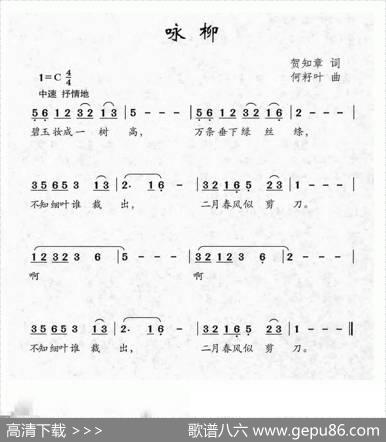 咏 柳
贺知章 词
何籽叶 曲
1=C 4/4
中速 抒情地
5 6 1 2 3 2 1 3 | 5 - - - | 5 6 1 2 3 2 1 3 | 2 - - - |
碧玉妆成一 树 高, 万条垂下绿 丝 绦,
3 5 6 5 3 5 1 3 | 2· 1 6 - | 3 2 1 6 5 2 3 | 1 - - - |
不知细叶谁 裁 出, 二月春风似 剪 刀。
1 2 3 2 3 6 | 5 - - - | 3 2 1 2 3 6 | 2 - - - |
啊 啊
3 5 6 5 3 5 1 3 | 2· 1 6 - | 3 2 1 6 5 2 3 | 1 - - - ||
不知细叶谁 裁 出, 二月春风似 剪 刀。
高清下载 >>>
歌谱八六 www.gepu86.com